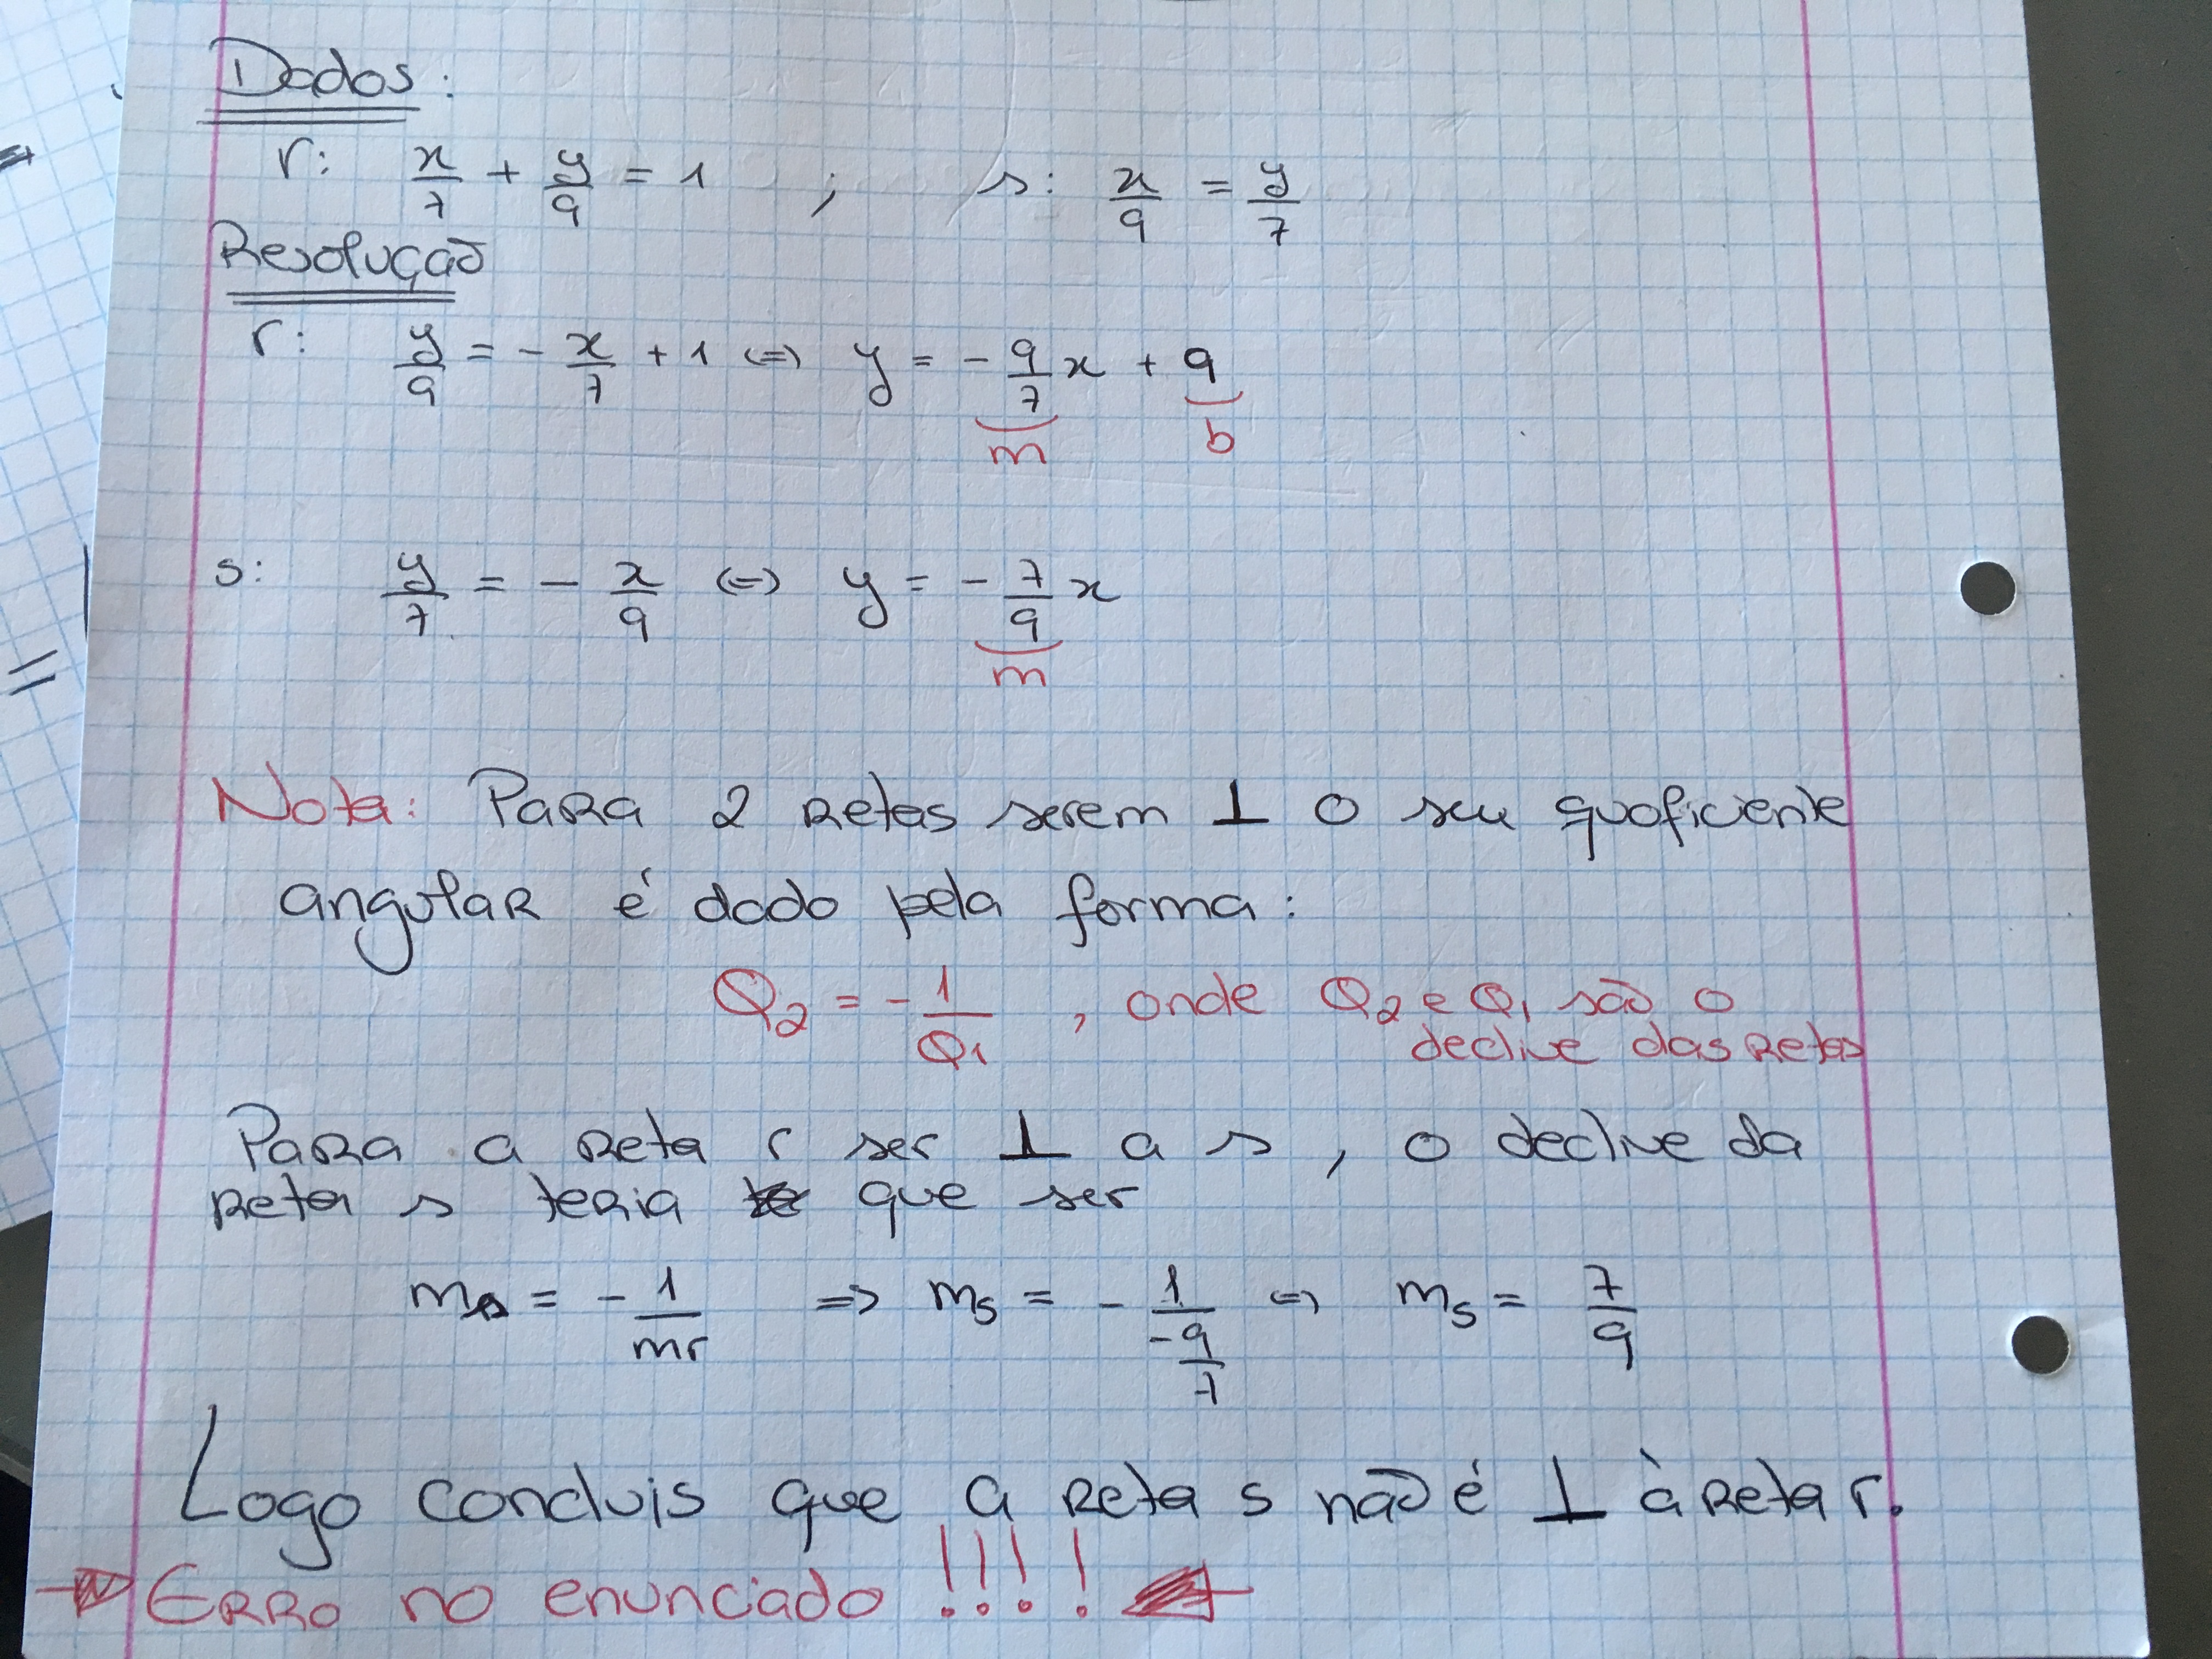 Dados:
r: x/7 + y/9 = 1 ; s: x/9 = y/7
Resolução
r: y/9 = - x/7 + 1 (=) y = - 9/7 x + 9
m b
s: y/7 = - x/9 (=) y = - 7/9 x
m
Nota: Para 2 retas serem ⊥ o seu quoficiente
angular é dado pela forma:
Q2 = - 1/Q1 , onde Q2 e Q1 são o
declive das retas
Para a reta r ser ⊥ a s, o declive da
reta s teria que ser
ms = - 1/mr => ms = - 1/(-9/7) (=) ms = 7/9
Logo concluis que a reta s não é ⊥ à reta r.
Erro no enunciado !!!!